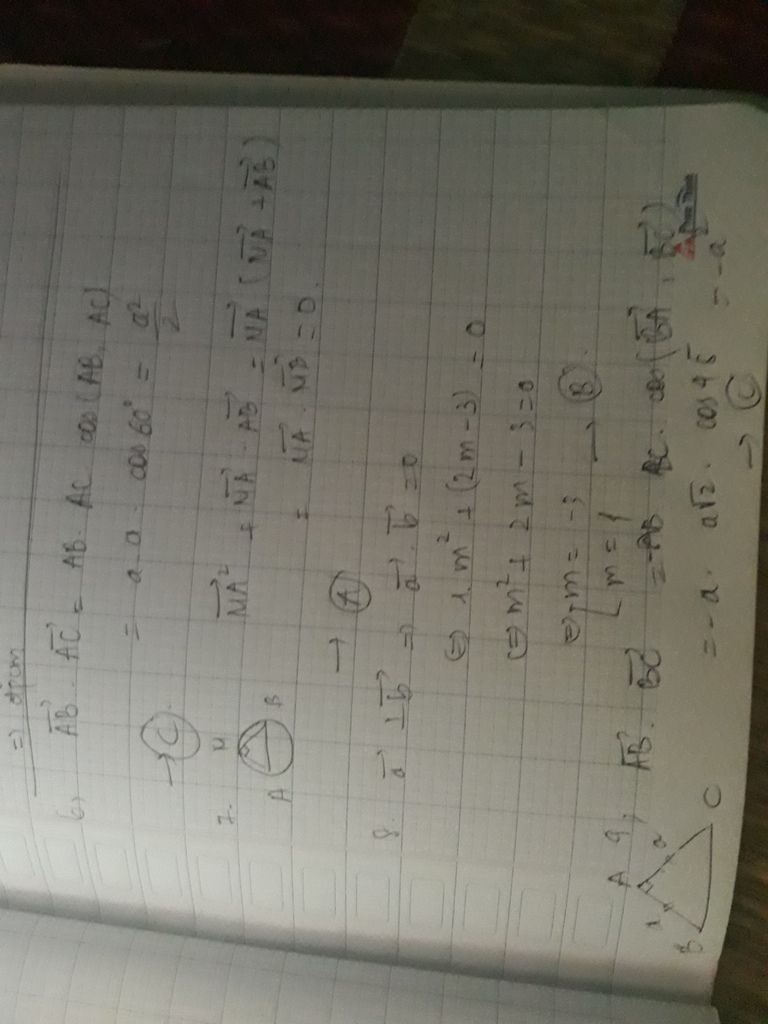 => đpcm
6, AB→ . AC→ = AB . AC cos(AB, AC)
= a . a . cos 60° = a²/2
→ Ⓒ.
7. MA→² + MA→ . AB→ = MA→ (MA→ + AB→)
= MA→ . MB→ = 0.
M
A B
→ Ⓐ
8. a→ ⊥ b→ => a→ . b→ = 0
(=) 1.m² + (2m - 3) = 0
(=) m² + 2m - 3 = 0
(=) [ m = -3
m = 1 → Ⓑ.
9, AB→ . BC→ = -AB . BC . cos(BA→, BC→)
= -a . a√2 . cos 45 = -a
→ Ⓒ
A
a a
B C